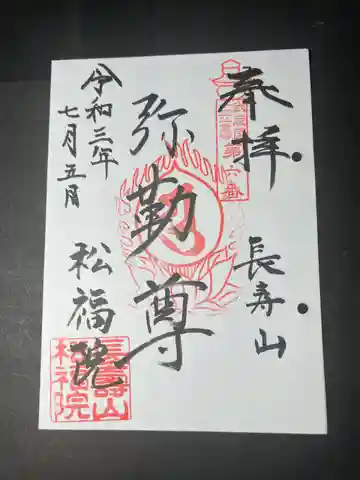 奉拝
長寿山
弥勒尊
令和三年
七月五日
松福院
第六番
長壽山
松福院